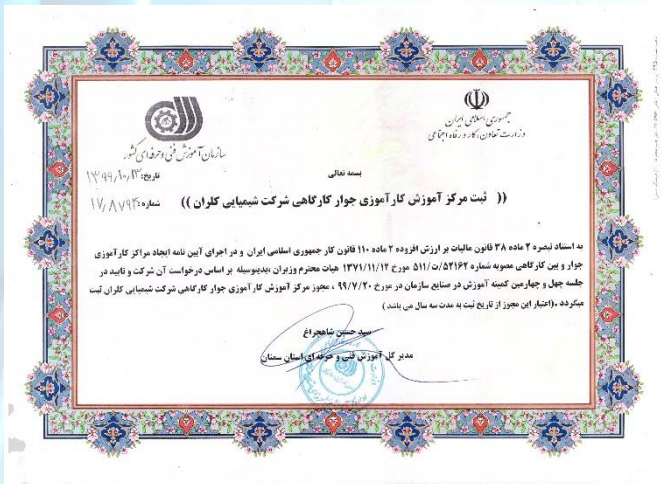 جمهوری اسلامی ایران
وزارت تعاون، کار و رفاه اجتماعی
سازمان آموزش فنی و حرفه‌ای کشور
بسمه تعالی
تاریخ:
شماره:
(( ثبت مرکز آموزش کارآموزی جوار کارگاهی شرکت شیمیایی کلران ))
به استناد تبصره ۲ ماده ۳۸ قانون مالیات بر ارزش افزوده ۲ ماده ۱۱۰ قانون کار جمهوری اسلامی ایران و در اجرای آیین نامه ایجاد مراکز کارآموزی
جوار و بین کارگاهی مصوبه شماره ۵۲۱۶۲/ت/۵۱۱ مورخ ۱۳۷۱/۱۱/۱۲ هیات محترم وزیران ،بدینوسیله بر اساس درخواست آن شرکت و تایید در
جلسه چهل و چهارمین کمیته آموزش در صنایع سازمان در مورخ ۹۹/۷/۲۰ ، مجوز مرکز آموزش کارآموزی جوار کارگاهی شرکت شیمیایی کلران ثبت
میگردد .(اعتبار این مجوز از تاریخ ثبت به مدت سه سال می باشد )
سید حسین شاهچراغ
مدیر کل آموزش فنی و حرفه ای استان سمنان